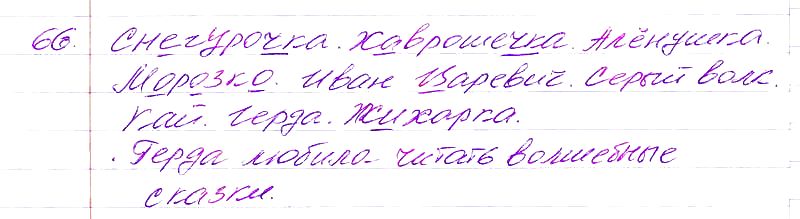 66. Снегурочка. Хаврошечка. Алёнушка.
Морозко. Иван Царевич. Серый волк.
Кай. Герда. Жихарка.
Герда любила читать волшебные
сказки.